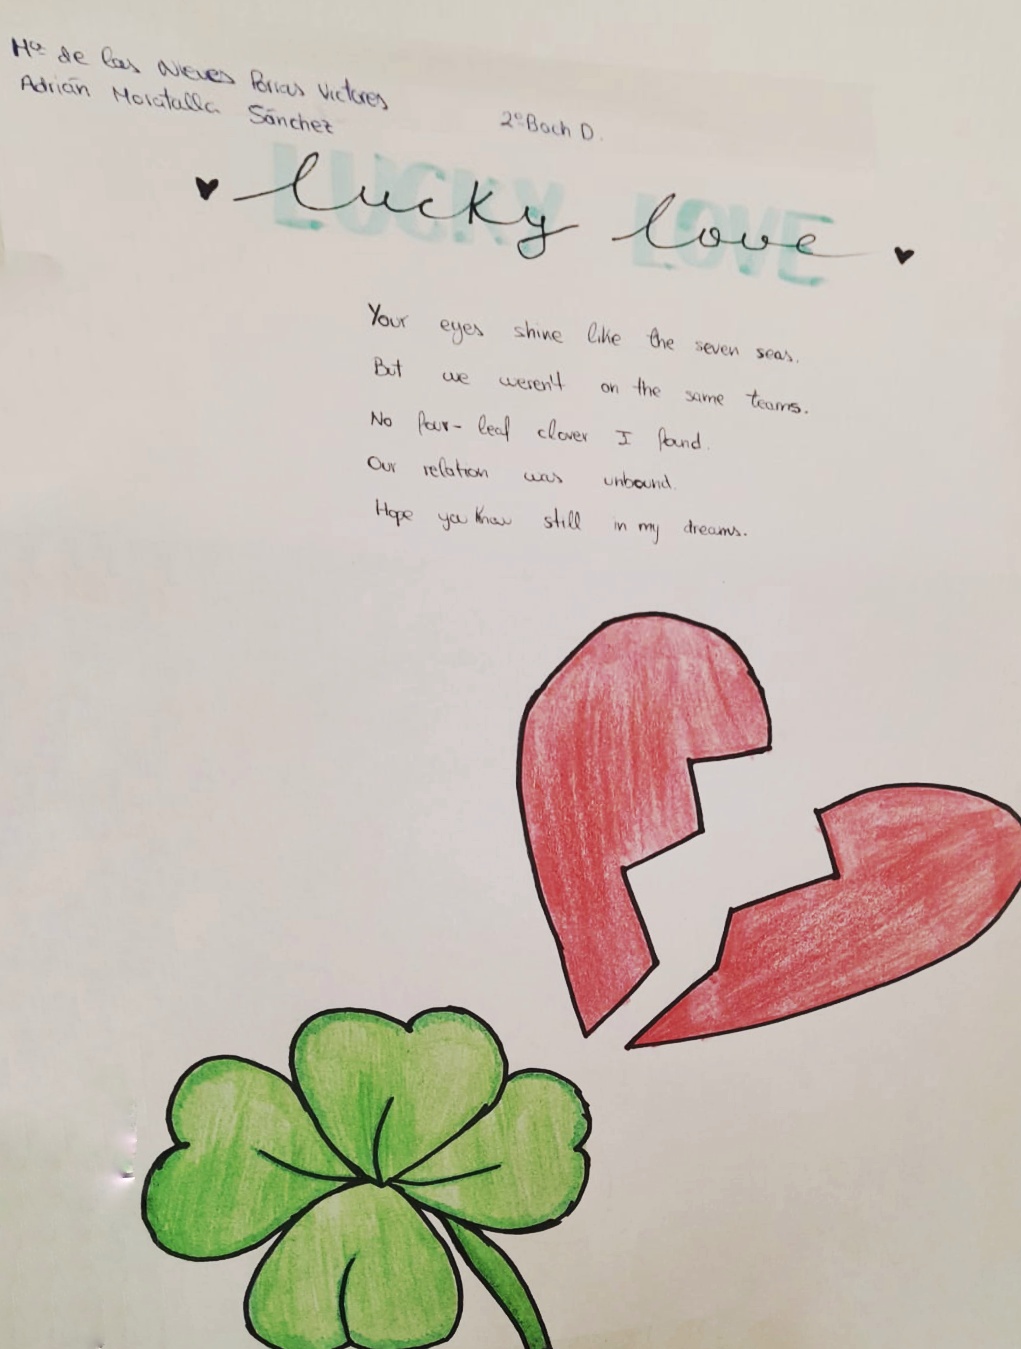 Mª de las Nieves Porras Victores
Adrián Moratalla Sánchez
2º Bach D.
LUCKY LOVE
lucky love
Your eyes shine like the seven seas.
But we weren't on the same teams.
No four-leaf clover I found.
Our relation was unbound.
Hope you know still in my dreams.